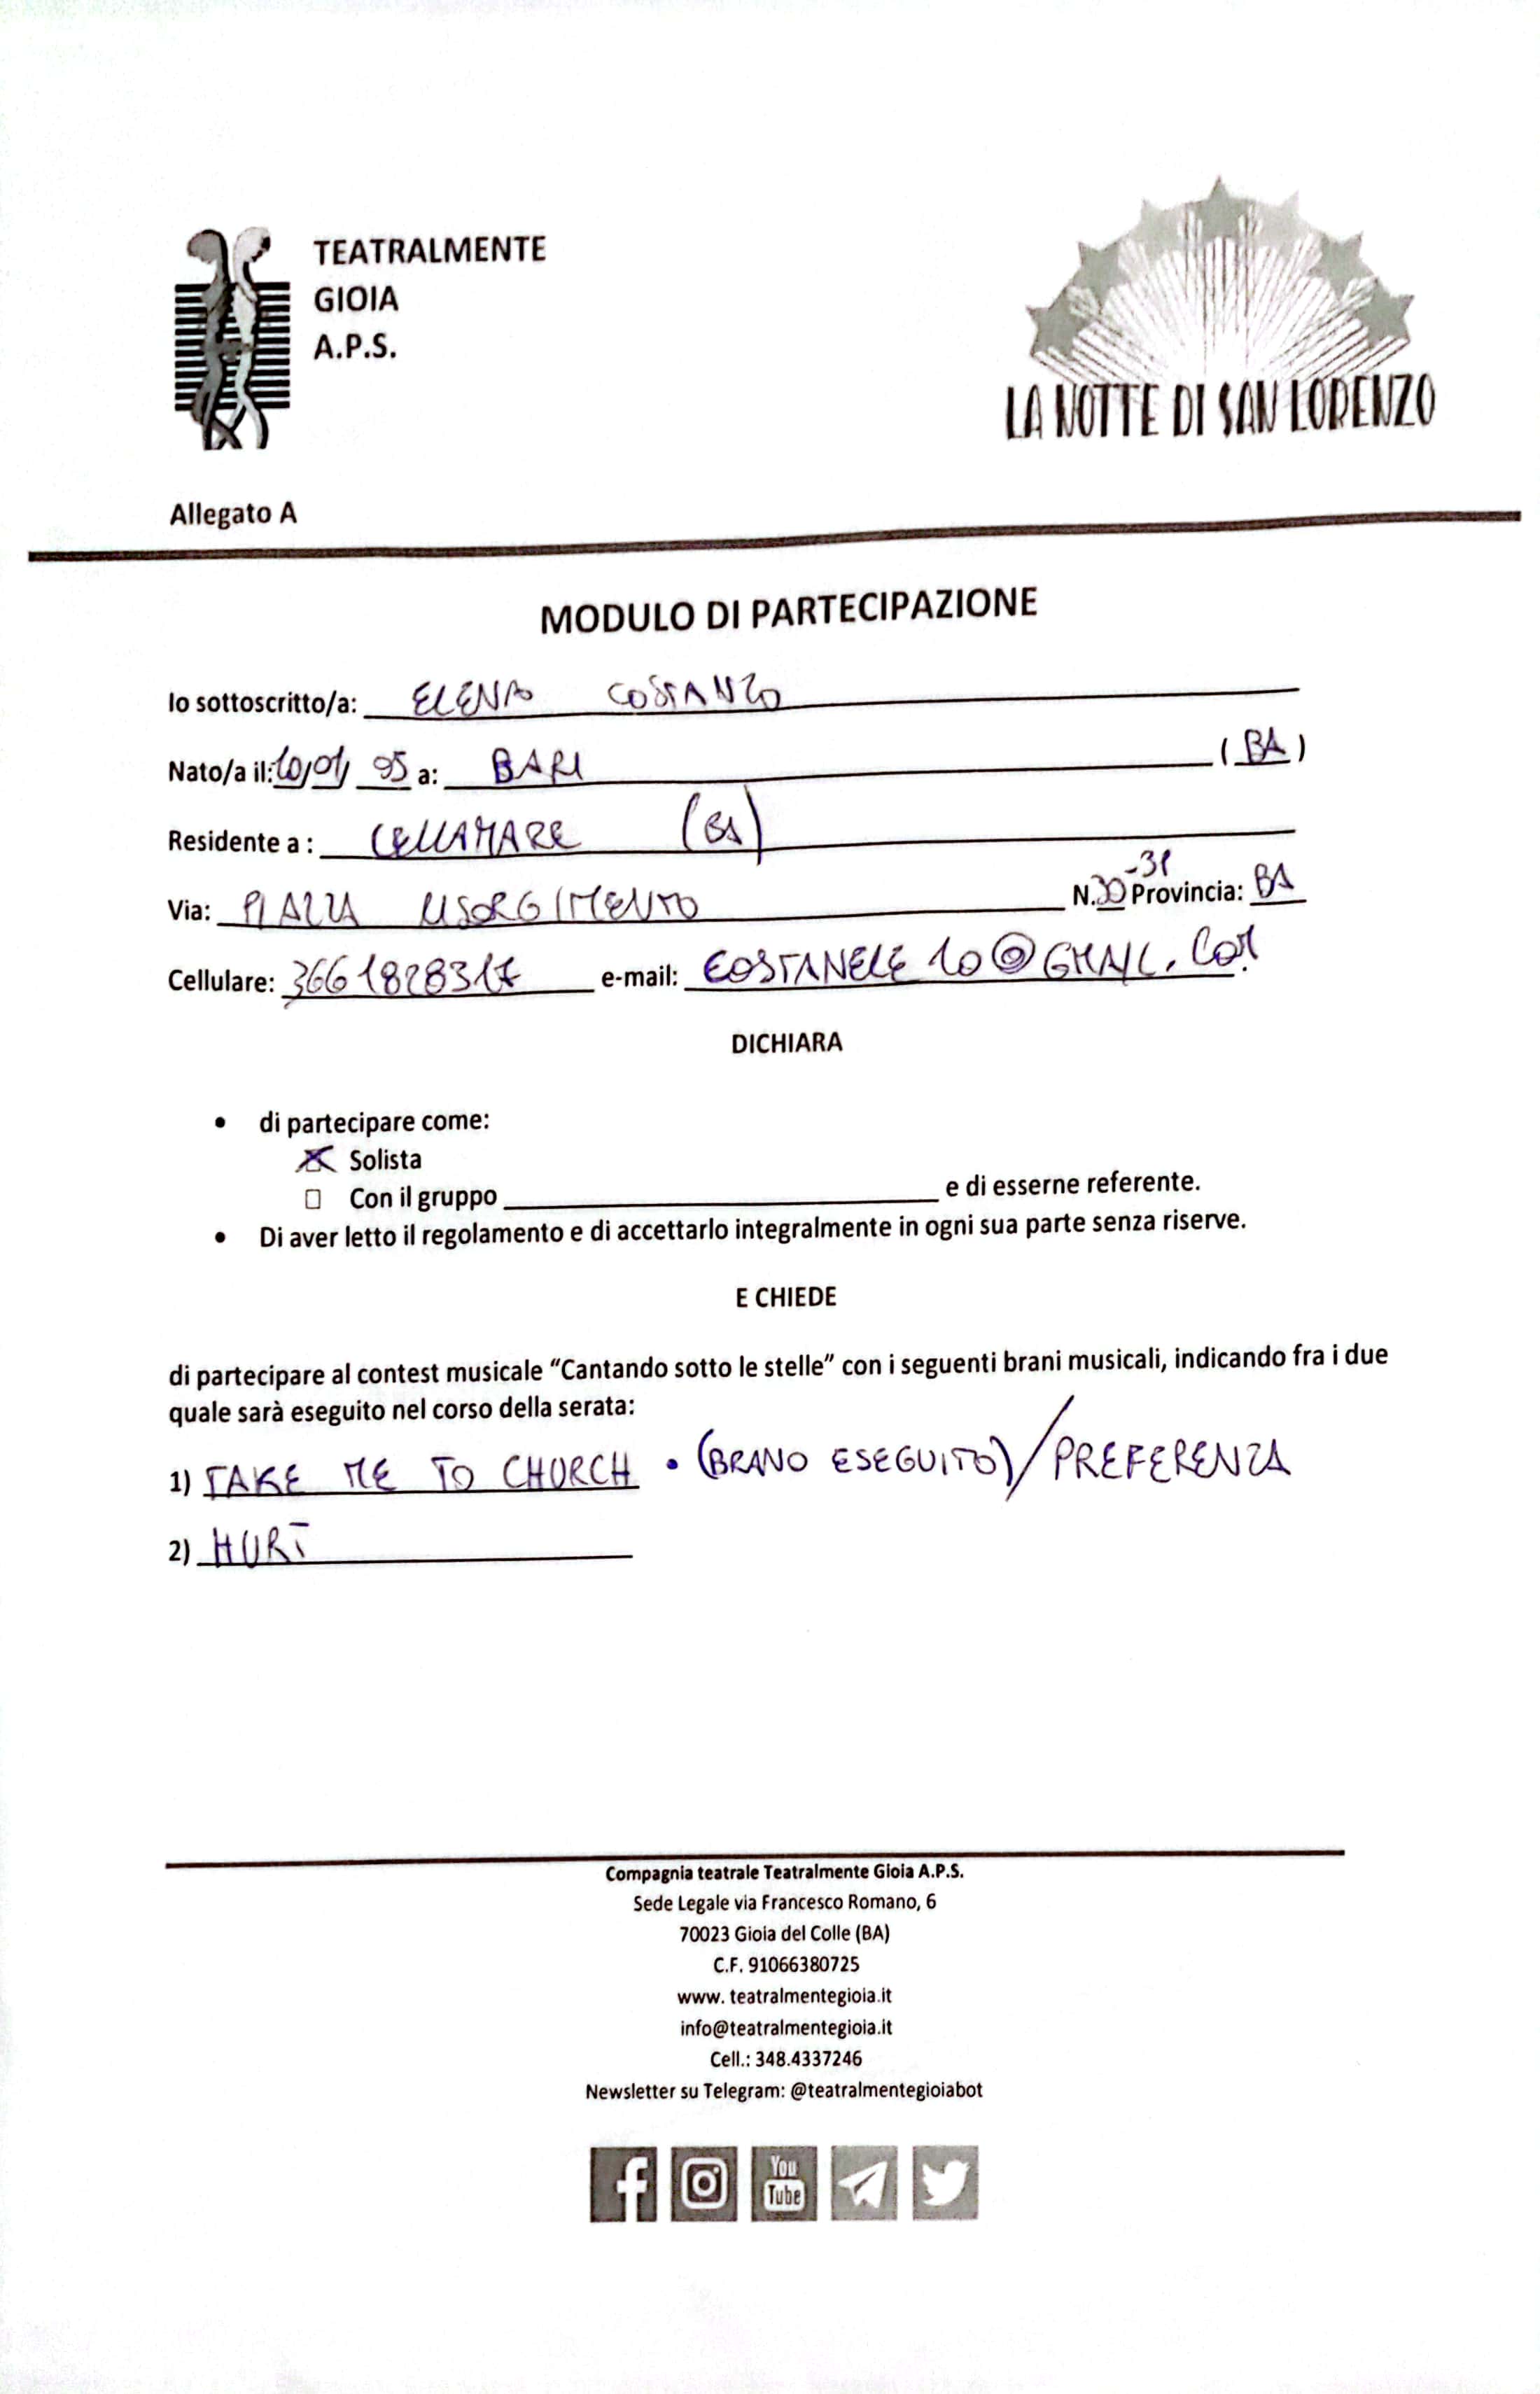 TEATRALMENTE
GIOIA
A.P.S.
LA NOTTE DI SAN LORENZO
Allegato A
MODULO DI PARTECIPAZIONE
Io sottoscritto/a: ELENA COSTANZO
Nato/a il: 10/01/ 95 a: BARI (BA)
Residente a : CELLAMARE (BA)
Via: PIAZZA RISORGIMENTO N.30-31 Provincia: BA
Cellulare: 3661828317 e-mail: COSTANELE10@GMAIL.COM
DICHIARA
• di partecipare come:
Solista
Con il gruppo e di esserne referente.
• Di aver letto il regolamento e di accettarlo integralmente in ogni sua parte senza riserve.
E CHIEDE
di partecipare al contest musicale “Cantando sotto le stelle” con i seguenti brani musicali, indicando fra i due
quale sarà eseguito nel corso della serata:
1) TAKE ME TO CHURCH • (BRANO ESEGUITO)/PREFERENZA
2) HURT
Compagnia teatrale Teatralmente Gioia A.P.S.
Sede Legale via Francesco Romano, 6
70023 Gioia del Colle (BA)
C.F. 91066380725
www. teatralmentegioia.it
info@teatralmentegioia.it
Cell.: 348.4337246
Newsletter su Telegram: @teatralmentegioiabot
You
Tube